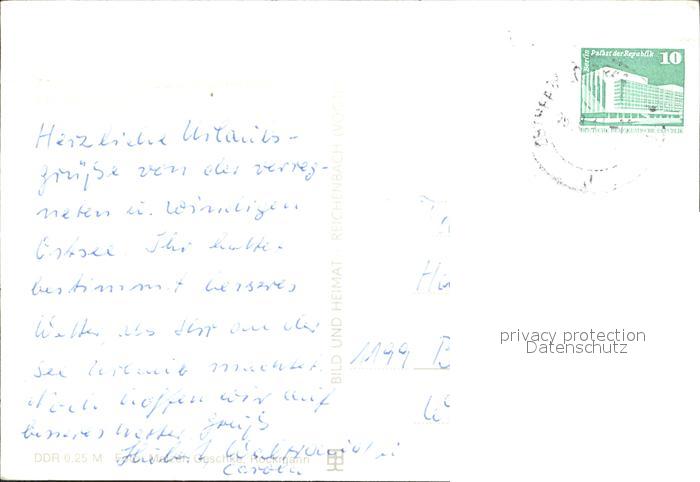 Herzliche Urlaubs-
grüße von der verreg-
neten u. windigen
Ostsee. Ihr hattet
bestimmt besseres
Wetter, als Ihr an der
See Urlaub machtet.
Noch hoffen wir auf
besseres Wetter. Grüß
Carola
DDR 0,25 M
BILD UND HEIMAT REICHENBACH
1199 B
Berlin Palast der Republik 10
DEUTSCHE DEMOKRATISCHE REPUBLIK
privacy protection
Datenschutz